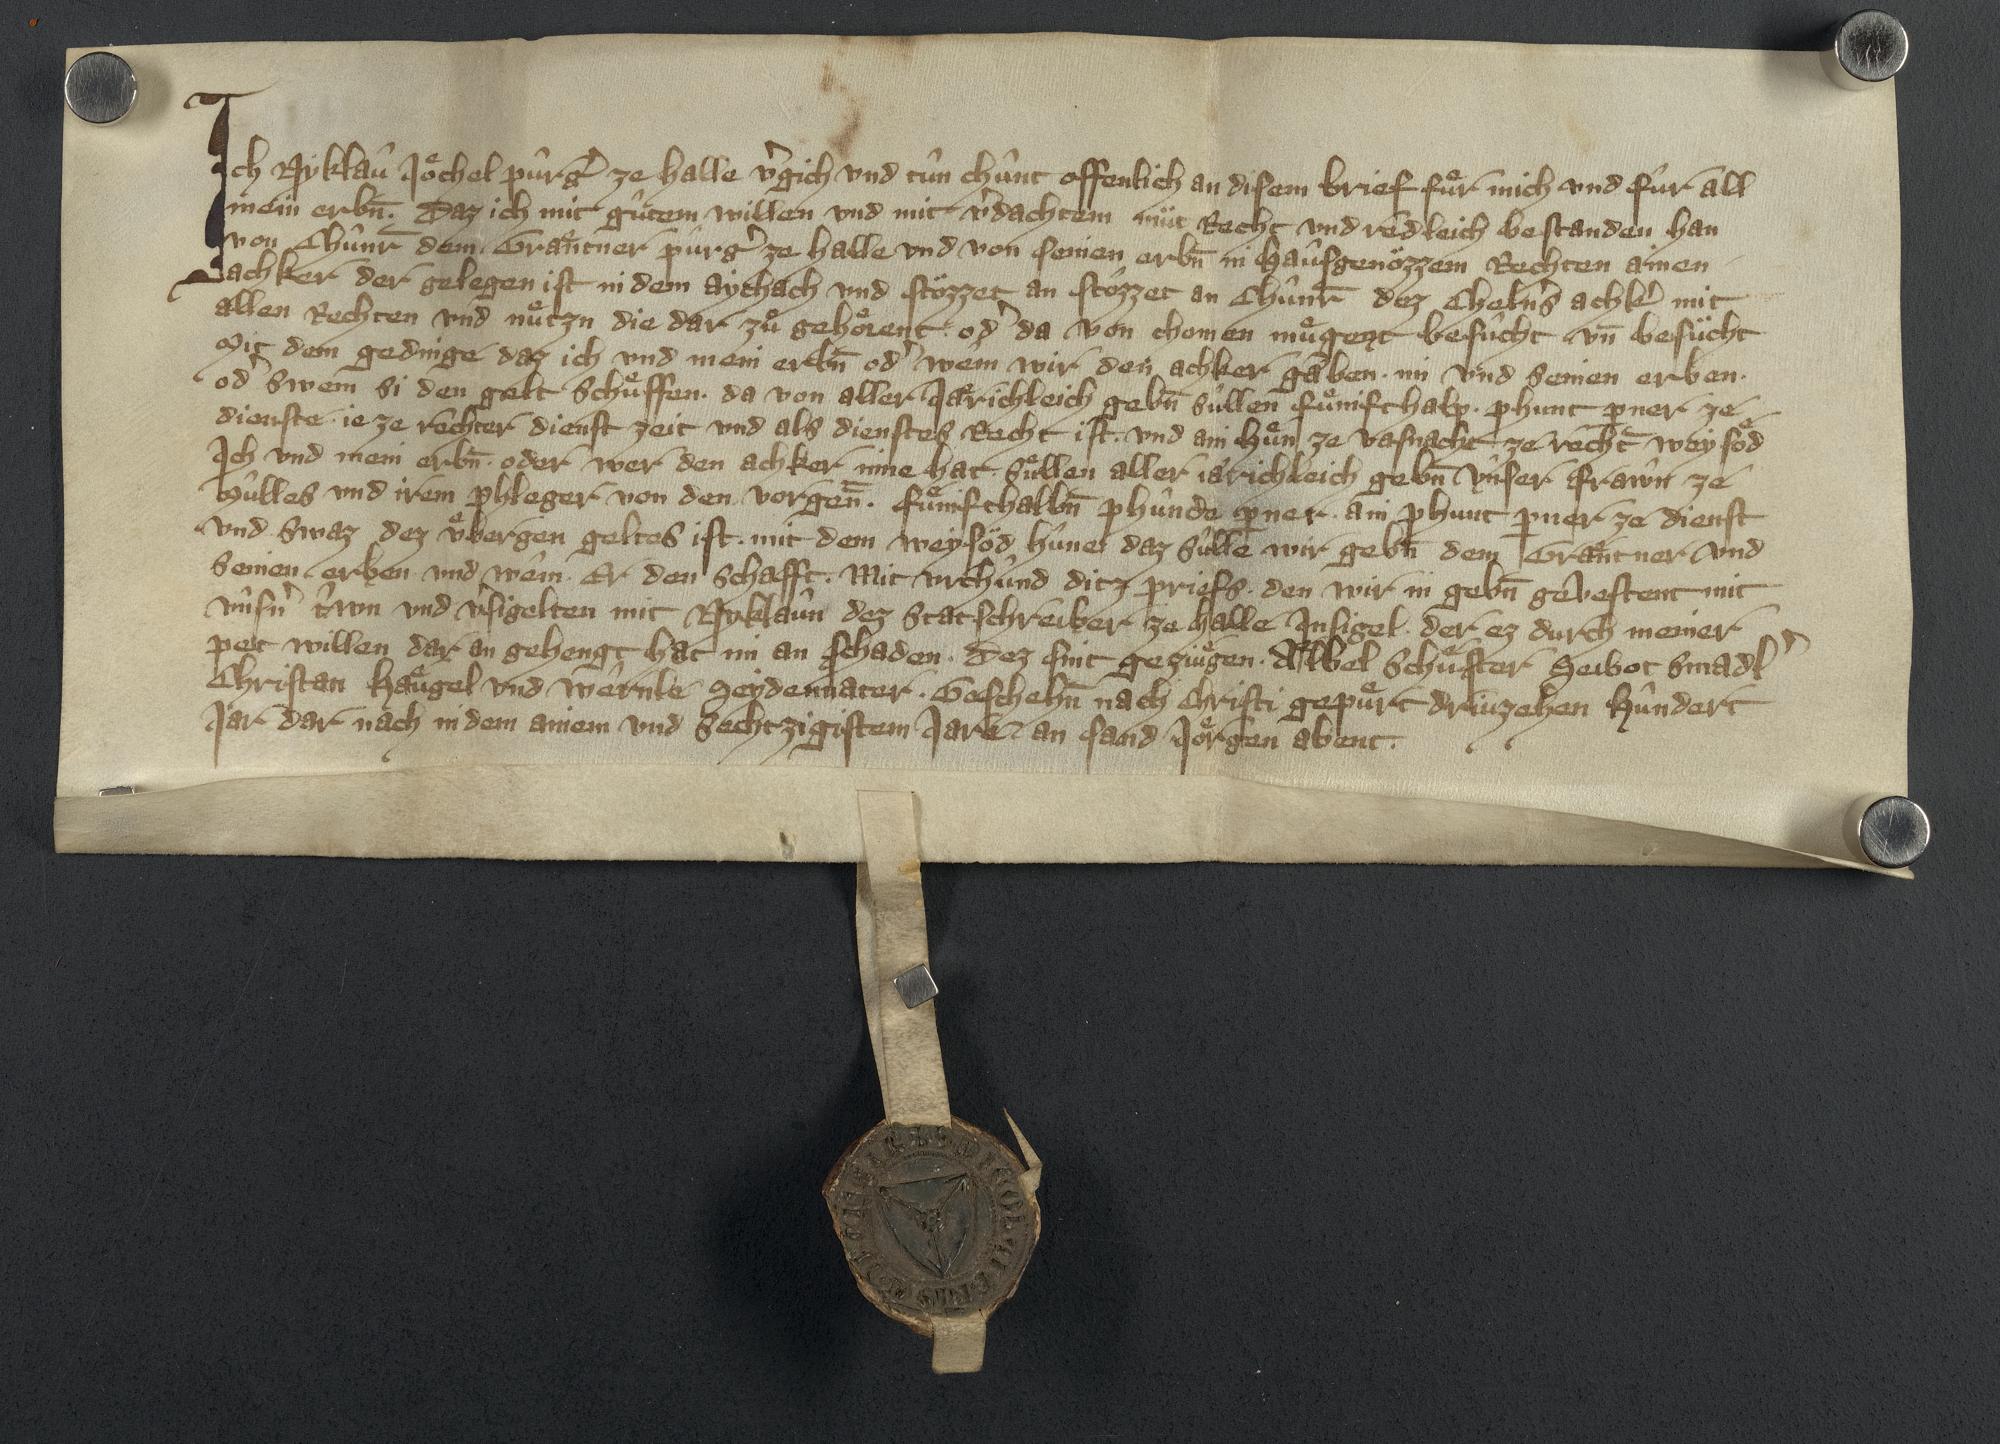 Ich Nyklaû Jöchel pûrg͛ ze halle v͛gich vnd tûn chûnt offenlich an disem brief fuͤr mich vnd fûr all
mein erbn̄. Daz ich mit gûtem willen vnd mit v͛dachtem mût Recht vnd redleich bestanden han
von Chûnr̄ dem Graͤntner pûrg͛ ze halle vnd von seinen erbn̄ in haûsgenözzem Rechten ainen
achker der gelegen ist in dem aychach vnd stözzet an stözzet an Chûnr̄ dez Cheln͛s achk͛ mit
allen Rechten vnd nuͤtzn die dar zuͤ gehoͤrent. od͛ da von chomen muͤgent besûcht vn̄ besûcht
Mit dem gedinge daz ich vnd mein erbn̄ od͛ wem wir den achker gâben. im vnd seinen erben.
od͛ swem si den gelt schuͤffen. da von aller Jaͤrichleich gebn̄ sûllen fuͤmfthalp. phunt pner ze
dienste. ie ze rechter dienst zeit vnd als dienstes Recht ist. vnd ain huͤn ze vasnacht ze recht͛ weysöd
Ich vnd mein erbn̄. oder wer den achker inne hat. suͤllen aller iaͤrichleich gebn̄ vnser frawn ze
Vûlles vnd irem phleger von den vorgen̄. fuͤmfthalbn̄ phûnde pner. ain phunt pner ze dienst
vnd swaz dez vͤbergen geltes ist. mit dem weysöd hûne. daz sûlle wir gebn̄ dem Graͤntner vnd
seinen erben vnd wem. Er den schafft. Mit vrchûnd ditz priefs. den wir in gebn̄ gevestent mit
vnsn͛ trwn vnd v͛sigelten mit Nyklaûn dez Statschreiber ze halle Insigel. der ez durch meiner
pet willen dar an gehengt hat im an schaden. Dez sint gezuͤgen. Aͤlbel Schuͤster Seibot Smadl͛
Christan Haͤugel vnd Wêrnle Seydennater. Geschehn̄ nach Christi gepuͤrt driuzehen hûndert
Jar dar nach in dem ainem vnd sechtzigistem Jare an sand Joͤrgen abent.